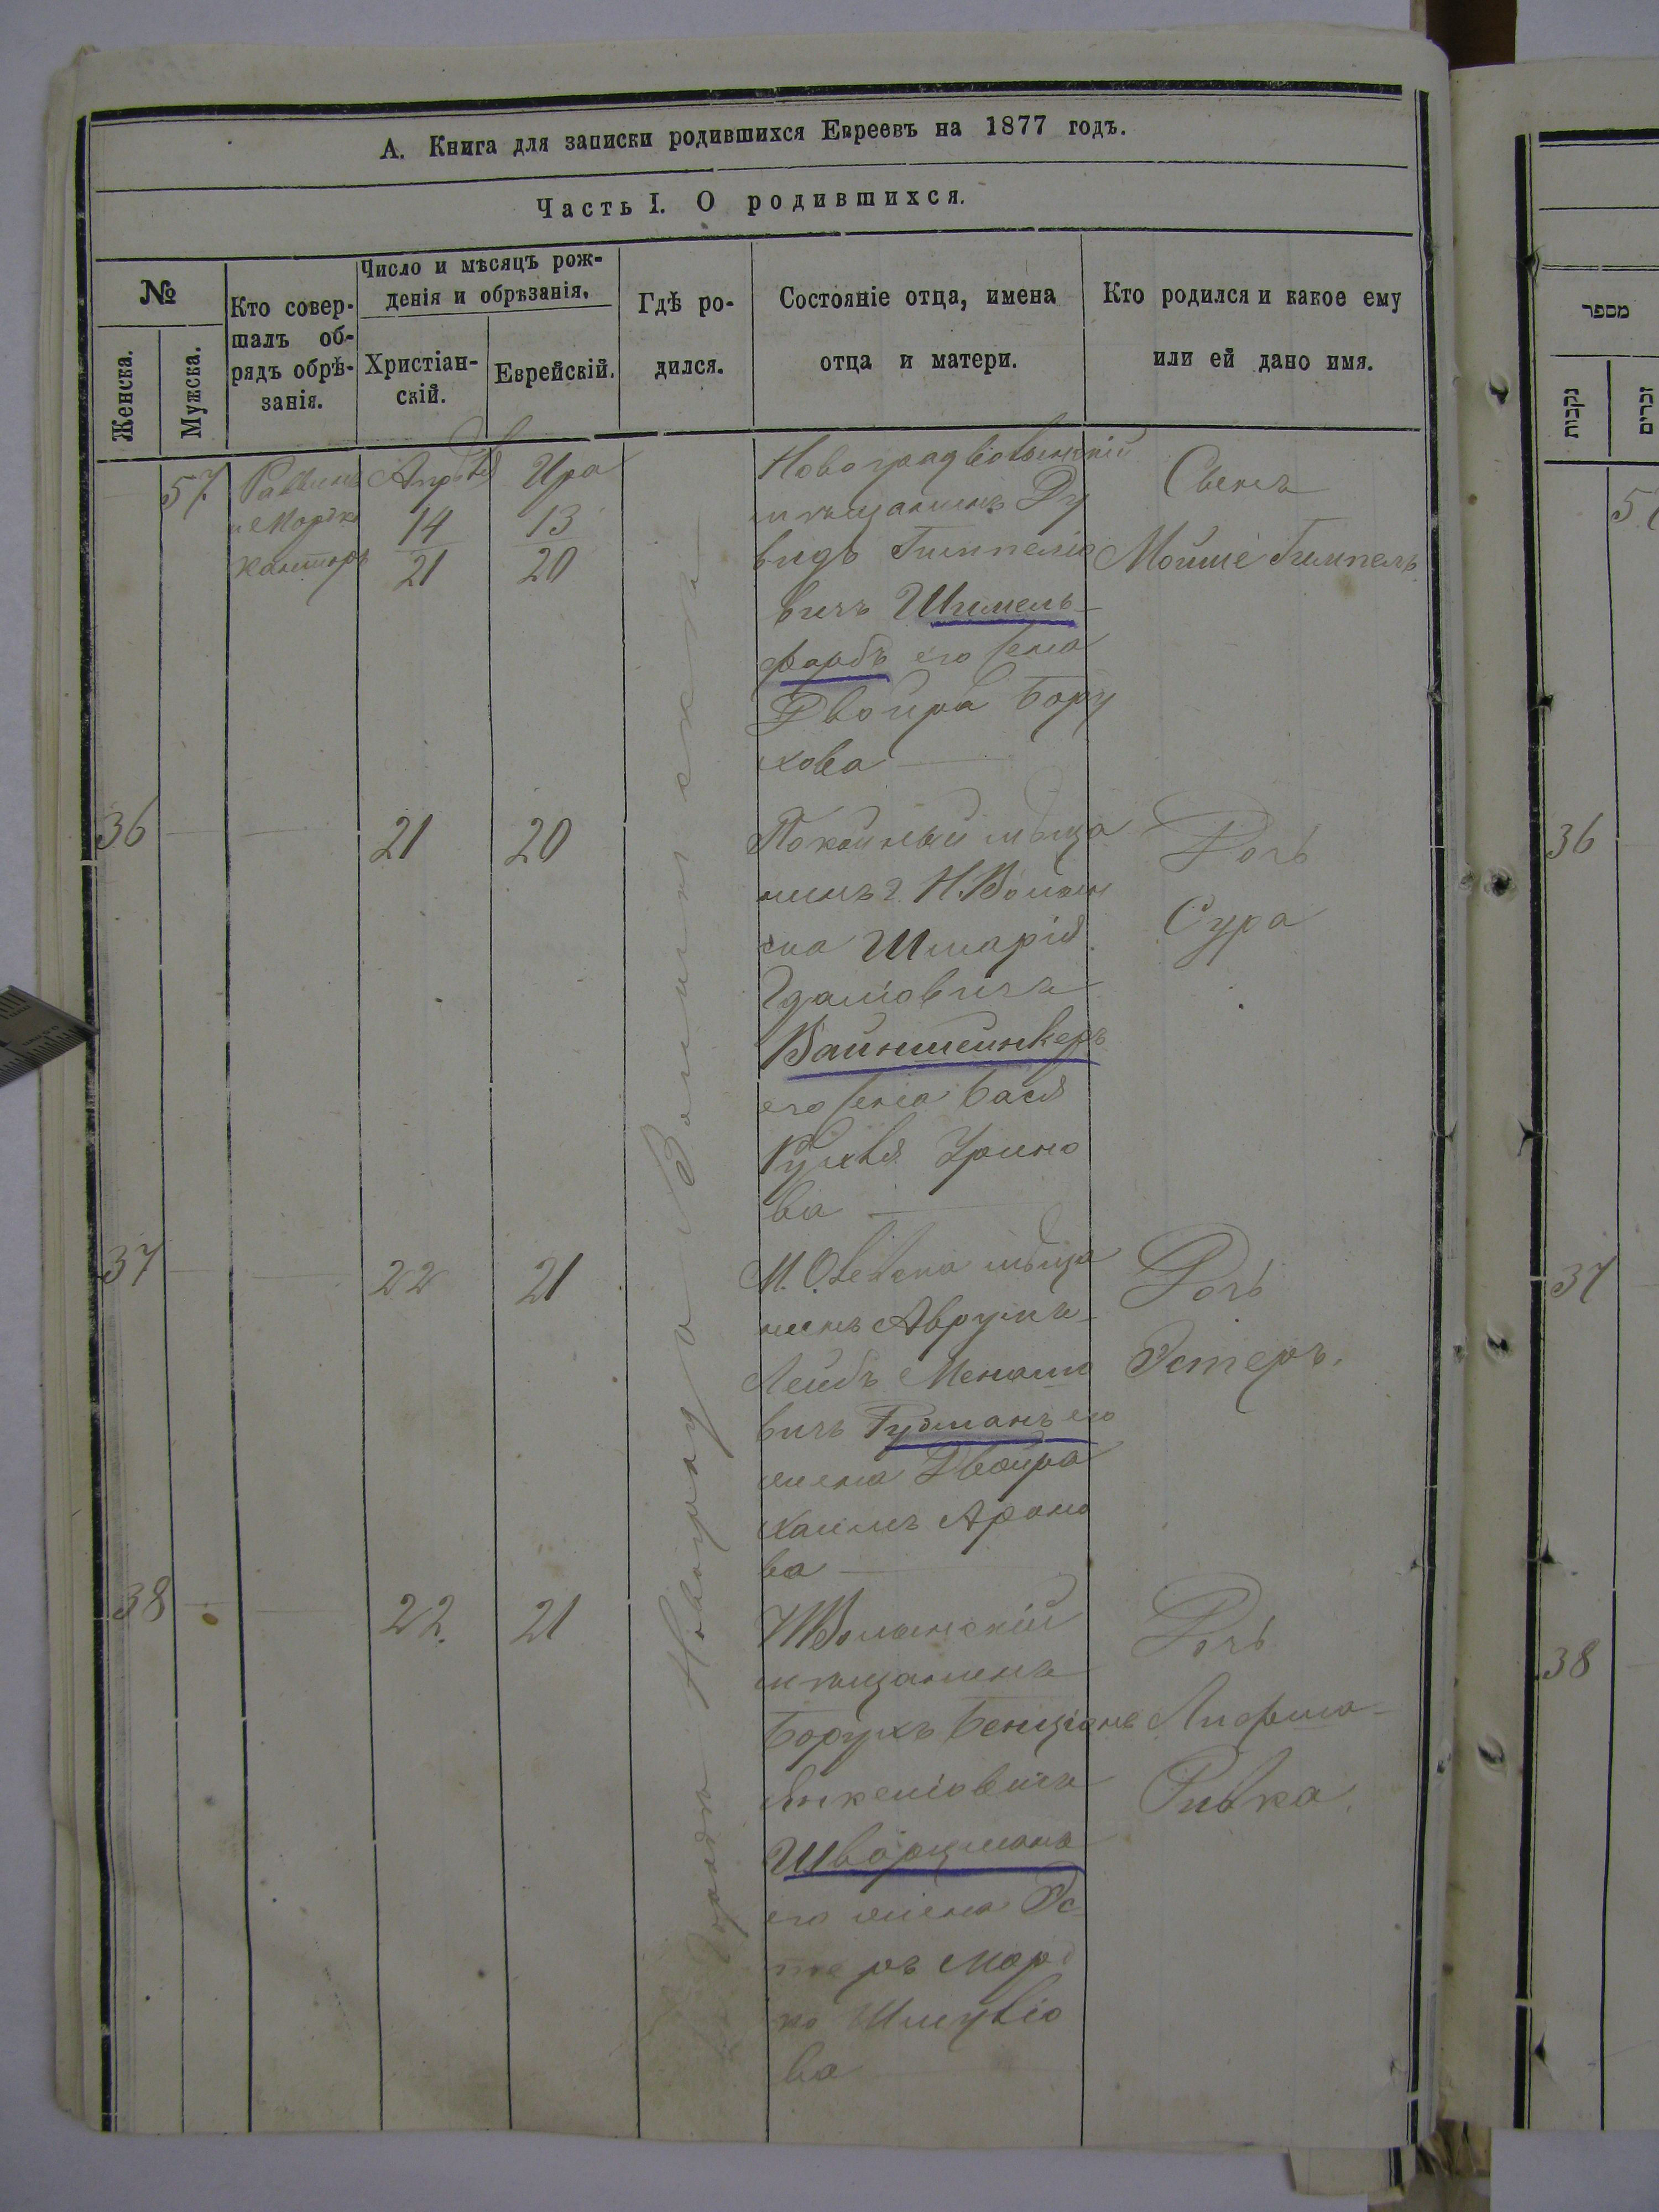 А. Книга для записки родившихся Евреевъ на 1877 годъ.
Часть I. О родившихся.
№
Женска.
Мужска.
Кто совер-
шалъ об-
рядъ обрѣ-
занія.
Число и мѣсяцъ рож-
денія и обрѣзанія.
Христіан-
скій.
Еврейскій.
Гдѣ ро-
дился.
Состояніе отца, имена
отца и матери.
Кто родился и какое ему
или ей дано имя.
57
Раввинъ
и Мортко
Канторъ
Апрѣля
14
21
Ира
13
20
Новоградволынскій
мѣщанинъ Ду
видъ Гимпеліо
вичъ Шимель-
фарбъ его жена
Двойра Бору
хова
Сынъ
Мойше Гимпель
36
21
20
Покойный мѣща
нинъ г. Н.Волын
ска Шмарія
Гдаліовичъ
Вайншейнкеръ
его жена Бася
Рухля
ва
Дочь
Сура
37
22
21
мѣща
нинъ Аврумъ-
Лейбъ Менашо
вичъ Гутманъ его
жена Двойра
Хаимъ Ароно
ва
Дочь
Эстеръ.
38
22.
21
Н.Волынскій
мѣщанинъ
Борухъ Бенціонъ
Янкеліовичъ
Шварцманъ
его жена Эс
теръ Морд
ко Шмуліо
ва
Дочь
Ривка.
Городъ Новоградъ Волынскъ
מספר
נקבות
זכרים
57
36
37
38